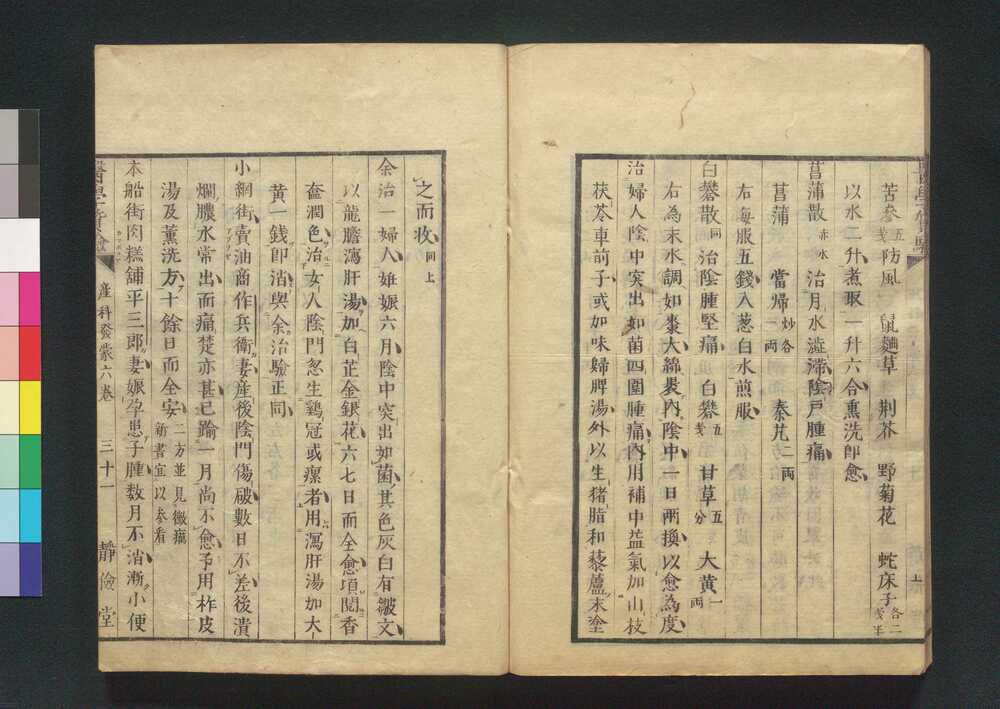 苦参五戔防風 鼠麯草 荆芥 野菊花 蛇床子各二戔半
以水二升煮取一升六合熏洗即愈
菖蒲散赤水治月水澁滯陰戶腫痛
菖蒲 當帰炒各一両 秦艽二両
右每服五錢入葱白水煎服
白礬散同治陰腫堅痛 白礬五戔 甘草五分 大黄一両
右為末水調如棗大綿裹內陰中一日兩換以愈為度
治婦人陰中突出如菌四圍腫痛內用補中益氣加山梔
茯苓車前子或如味歸脾湯外以生猪脂和藜蘆末塗
之而收同上
余治一婦人姙娠六月陰中突出如菌其色灰白有皺文
以龍膽瀉肝湯加白芷金銀花六七日而全愈項閱香
奩潤色治女人陰門忽生鷄冠或瘰者用瀉肝湯加大
黄一錢即消與余治驗正同
小網街賣油商作兵衛妻產後陰門傷破數日不差後潰
爛膿水常出而痛楚亦甚已踰一月尚不愈予用柞皮
湯及薰洗方十餘日而全安二方並見黴癘新書宜以參看
本船街肉糕舗平三郎妻娠孕患子腫数月不消漸小便
產科發蒙六卷 三十一 靜儉堂